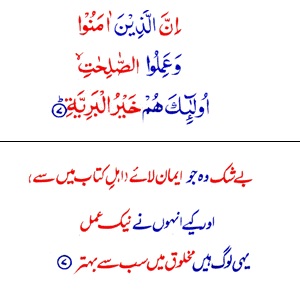 اِنَّ الَّذِيْنَ اٰمَنُوْا
وَعَمِلُوا الصّٰلِحٰتِ ۙ
اُولٰٓئِكَ هُمْ خَيْرُ الْبَرِيَّةِ ؕ ﴿۷﴾
بے شک وہ جو ایمان لائے (اہلِ کتاب میں سے)
اور کیے انہوں نے نیک عمل
یہی لوگ ہیں مخلوق میں سب سے بہتر ﴿۷﴾